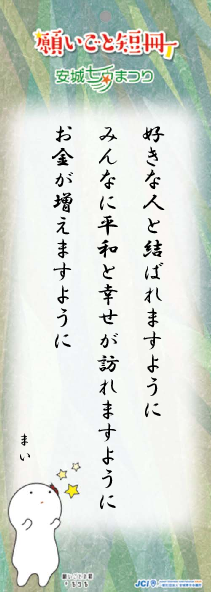 願いごと短冊
安城七夕まつり
好きな人と結ばれますように
みんなに平和と幸せが訪れますように
お金が増えますように
まい
JCI